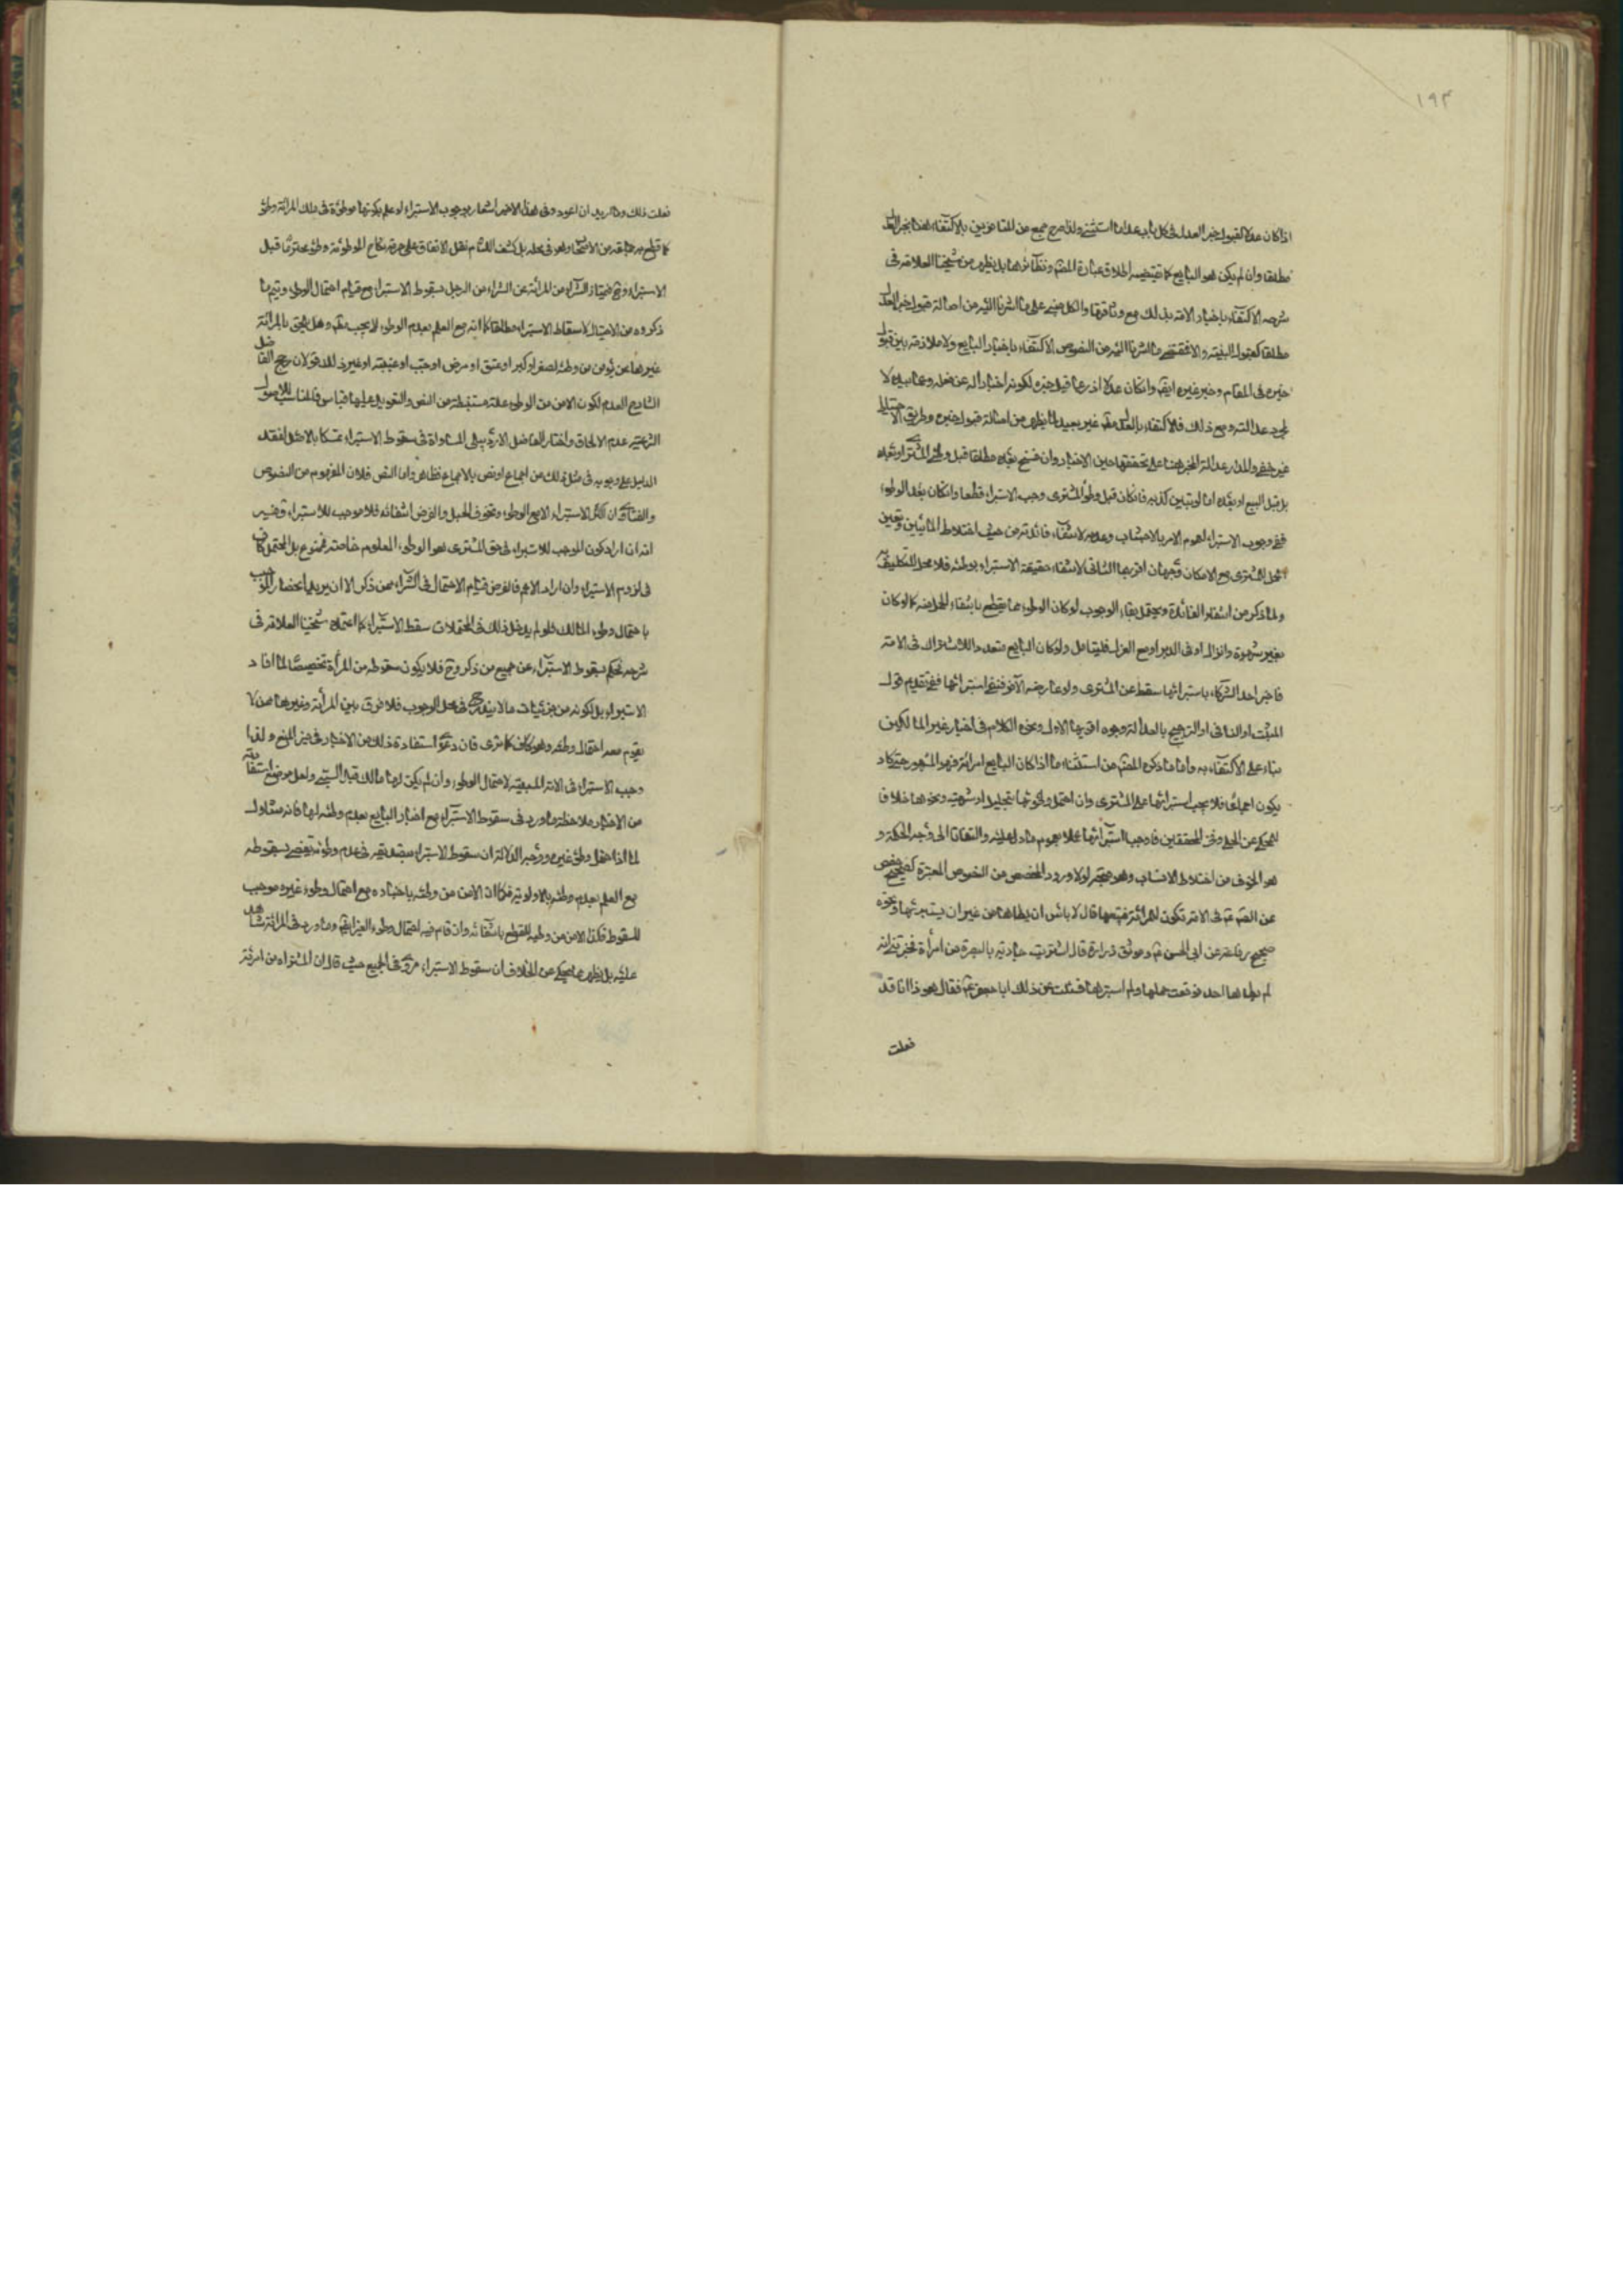 ١٩٣
اذا كان عدلا لقبول خبر العدل فى كل باب عدا ما استثنى ولذا صرح جمع من المتاخرين بالاكتفاء هنا بخبر العدل
مطلقا وان لم يكن هو البايع كما يقتضيه اطلاق عبارة المصنف ونظائرها بل يظهر من شيخنا العلامة فى
شرحه الاكتفاء باخبار الامة بذلك مع وثاقتها والكل مبنى على ما اشرنا اليه من اصالة قبول خبر العدل
مطلقا كقبول البينة والا فمقتضى ما اشرنا اليه من النصوص الاكتفاء باخبار البايع ولا ملازمة بين قبول
خبره فى المقام وخبر غيره ايضا وان كان عدلا اذ ربما قبل خبره لكونه اخبارا له عن فعله وعما بيده لا
لمجرد عدالته ومع ذلك فالاكتفاء بالعدل مطلقا غير بعيد لما يظهر من اصالة قبول خبره وطريق الاحتياط
غير خفى والمدار عدالة المخبر هنا على تحققها حين الاخبار وان فسق بعده مطلقا قبل وطى المشترى او بعده
بل قبل البيع او بعده اما لو تبين كذبه فان كان قبل وطؤ المشترى وجب الاستبراء قطعا وان كان بعد الوطوء
ففى وجوب الاستبراء لعموم الامر بالاجتناب وعدمه لانتفاء فائدته من حيث اختلاط المائين وتعين
المشترى مع الامكان وجهان اقربهما الثانى لانتفاء حقيقة الاستبراء بوطئه فلا محل للتكليف به
ولما ذكر من انتفاء الفائدة ويحتمل بقاء الوجوب لو كان الوطوء مما يقطع بانتفاء الحمل منه كما لو كان
بغير شهوة وانزال او فى الدبر او مع العزل فليتامل ولو كان البايع متعددا للاشتراك فى الامة
فاخبر احد الشركاء باستبرائها سقط عن المشترى ولو عارضه الآخر فنفى استبرائها ففى تقديم قول
المثبت او النافى او الترجيح بالعدالة وجوه اقربها الاول ونحوه الكلام فى اخبار غير المالكين
بناء على الاكتفاء به واما ما ذكره المصنف من استثناء ما اذا كان البايع امرائة فهو المشهور حتى كاد
يكون اجماعا فلا يجب استبرائها على المشترى وان احتمل وطؤها بتحليل او شبهة ونحوها خلافا
للمحكى عن الحلى وفخر المحققين فاوجبا استبرائها عملا بعموم ما دل عليه والتفاتا الى وجه الحكمة و
هو الخوف من اختلاط الانساب وهو متجه لولا ورود المخصص من النصوص المعتبرة كصحيح حفص
عن الصادق فى الامة تكون للمرائة فتبيعها قال لا باس ان يطاها من غير ان يستبرئها ونحوه
صحيح رفاعة عن ابى الحسن ع وموثق زرارة قال اشتريت جارية بالبصرة من امرأة فخبرتنى انه
لم يطاها احد فوقعت عليها ولم استبرئها فسئلت عن ذلك ابا جعفر ع فقال هو ذا انا قد
فعلت
فعلت ذلك وما اريد ان اعود وفى هذا الاخير اشعار بوجوب الاستبراء لو علم بكونها موطؤة فى ملك المرائة وطؤ
كما قطع به جماعة من الاصحاب وهو فى محله بل كشف اللثام نقل الاتفاق على حرمة نكاح الموطوئة وطؤ محترما قبل
الاستبراء وح فيمتاز الشراء من المرائة عن الشراء من الرجل بسقوط الاستبراء مع قيام احتمال الوطى ويتم ما
ذكروه من الاحتيال لاسقاط الاستبراء مطلقا كما انه مع العلم بعدم الوطوء لا يجب مطلقا وهل يلحق بالمرائة
غيرها ممن يؤمن من وطئه لصغر او كبر او عنن او مرض او جب او غيبة او غير ذلك قولان رجح الفاضل
الشارح العدم لكون الامن من الوطوء علة مستنبطة من النص والتعويل عليها قياس فالمناسب للاصول
الشرعية عدم الالحاق واختار الفاضل الاردبيلى المساواة فى سقوط الاستبراء تمسكا بالاصل لفقد
الدليل على وجوبه فى مثل ذلك من اجماع او نص بالاجماع فظاهر واما النص فلان المفهوم من النصوص
والفتاوى ان الاستبراء الا مع الوطوء وتخوف الحبل والفرض انتفائه فلا موجب للاستبراء وفيه
انه ان اراد كون الموجب للاستبراء فى حق المشترى هو الوطوء المعلوم خاصة فممنوع بل المحتمل كاف
فى لزوم الاستبراء وان اراد الاعم فالفرض قيام الاحتمال فى الشراء ممن ذكر الا ان يريد انحصار الموجب
باحتمال وطوء المالك فلو لم يدخل ذلك فى المحتملات سقط الاستبراء كما اعتمده شيخنا العلامة فى
شرحه فحكم بسقوط الاستبراء عن جميع من ذكر وح فلا يكون سقوطه من المرأة تخصيصا لما افاد
الاستبراء بل لكونه من جزئيات ما لا يندرج فى محل الوجوب فلا فرق بين المرأة وغيرها ممن لا
يقوم معه احتمال وطئه وهو كاف كما ترى فان دعوى استفادة ذلك من الاخبار فى حيز المنع ولذا
وجب الاستبراء فى الامة المسبية لاحتمال الوطوء وان لم يكن لها مالك قبل السبى ولعل موضع استفادته
من الاخبار ملاحظة ما ورد فى سقوط الاستبراء مع اخبار البايع بعدم وطئه لها فانه متناول
لما اذا احتمل وطؤ غيره ووجه الدلالة ان سقوط الاستبراء بتصديقه فى عدم وطوئه يقضى بسقوطه
مع العلم بعدم وطئه بالاولوية فكما ان الامن من وطئه باخباره مع احتمال وطوء غيره موجب
للسقوط فكذا الامن من وطيه للقطع بانتفائه وان قام فيه احتمال وطوء الغير ايضا وما ورد فى المرائة شاهد
عليه بل يظهر مما يحكى عن الخلاف ان سقوط الاستبراء مروى فى الجميع حيث قال ان المشتراه من امرئة